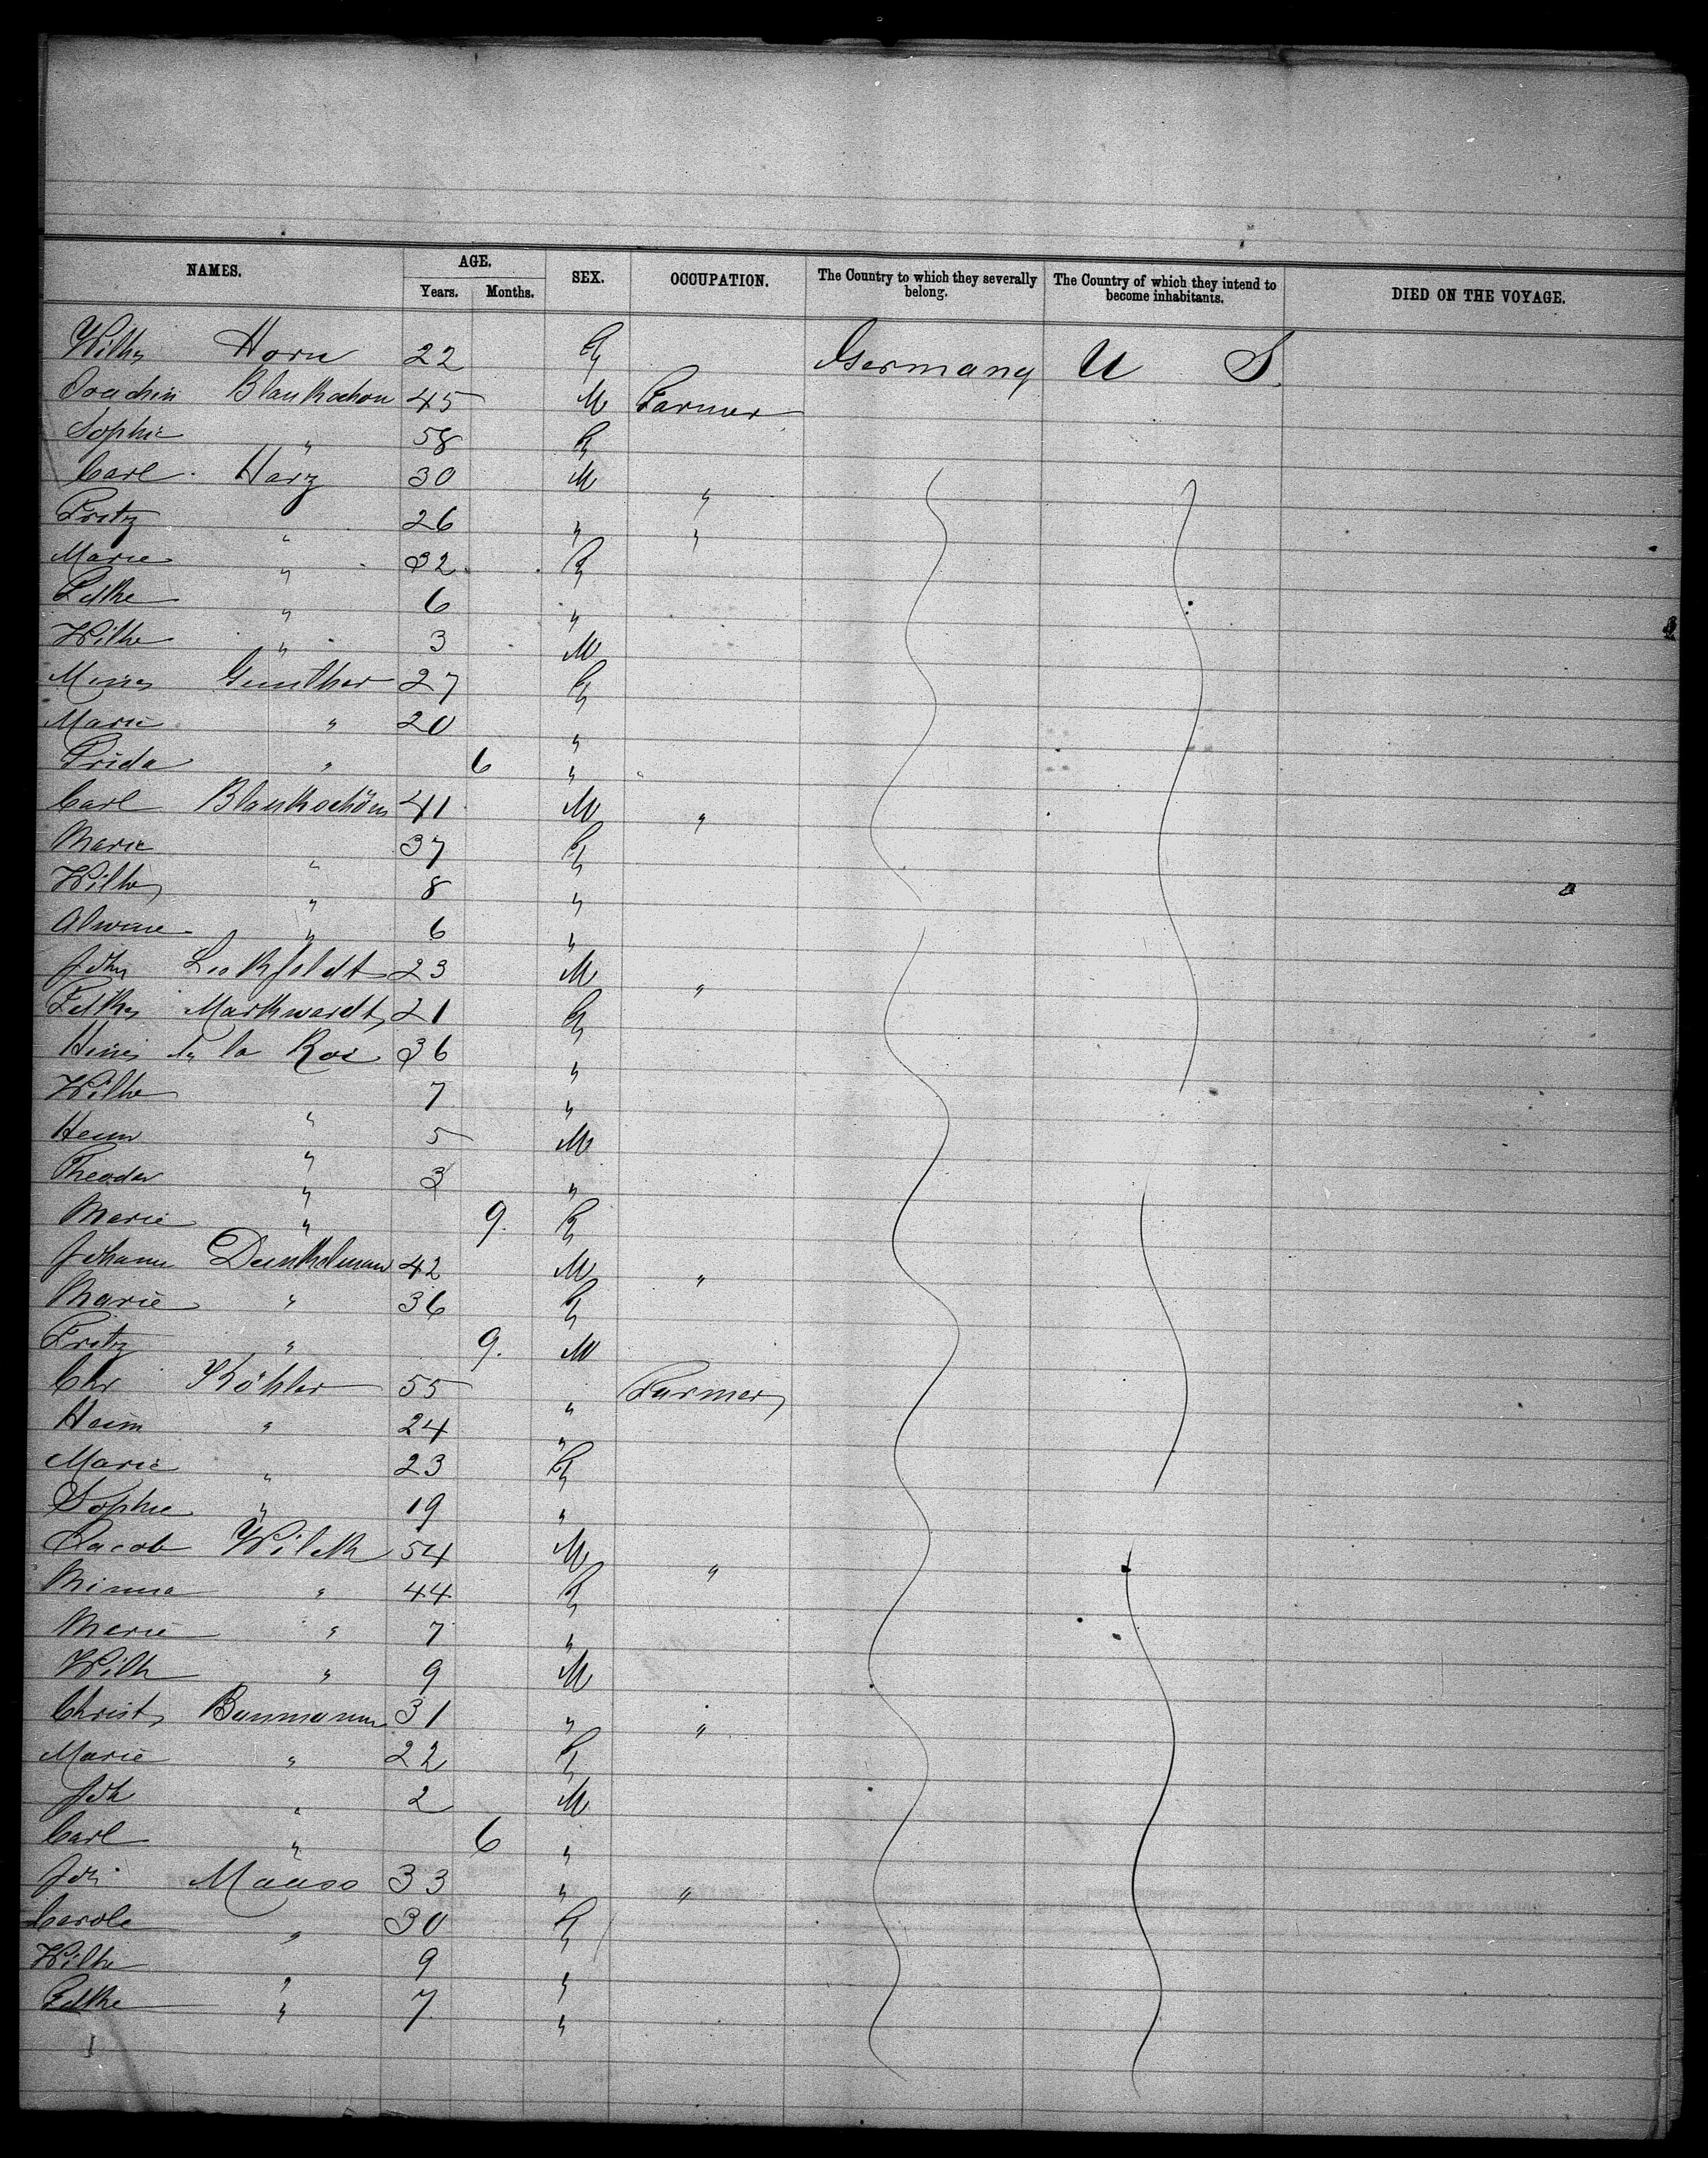 NAMES. AGE. SEX. OCCUPATION. The Country to which they severally belong. The Country of which they intend to become inhabitants. DIED ON THE VOYAGE.
Years. Months.
Horn 22 Germany U S.
Joachim 45 M Farmer
Sophie " 58
Carl Harz 30 M "
Fritz " 26 " "
Marie " 32
" 6 "
Wilhe " 3 M
Gunther 27
Marie " 20 "
Frida " 6 "
Carl Blankschön 41 M "
Marie " 37
" 8 "
Alwine " 6 "
Joh 23 M "
Markwardt 21
de la Roi 36 "
Wilhe " 7 "
Heinr " 5 M
Theodor " 3 "
Marie " 9.
Johann Dunkelmann 42 M "
Marie " 36
Fritz " 9. M
Chr Köhler 55 " Farmer
Heinr " 24 "
Marie " 23
Sophie " 19 "
Jacob 54 M "
Minna " 44
Marie " 7 "
Wilh " 9 M
Christ Baumann 31 " "
Marie " 22
Joh " 2 M
Carl " 6 "
Joh Maass 33 " "
Carole " 30
Wilhe " 9 "
" 7 "